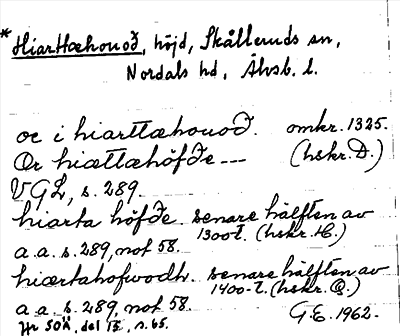 * Hiarttæhouoð, höjd, Skålleruds sn,
Nordals hd, Älvsb. l.
oc i hiarttæhouoð. omkr. 1325.
Or hiættæhöfðe --- (hskr. D.)
VGL, s. 289.
hiarta höfðe. senare hälften av
1300-t. (hskr. H.)
a.a. s. 289, not 58.
hiærtahofwodh. senare hälften av
1400-t. (hskr. Q.)
a.a. s. 289, not 58.
G.E. 1962.
Jfr SOÄ, del IX, s. 65.